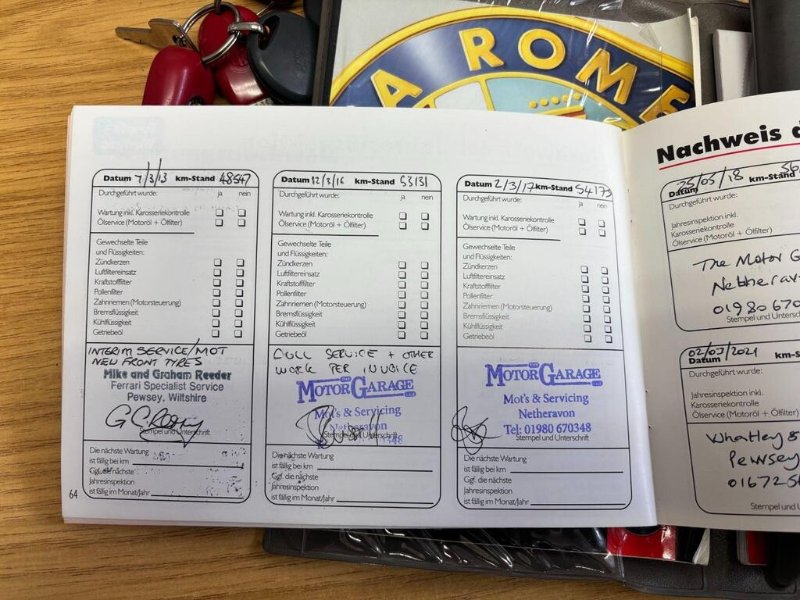 A ROME
Datum 7/3/13 km-Stand 48547
Durchgeführt wurde: ja nein
Wartung inkl. Karosseriekontrolle
Ölservice (Motoröl + Ölfilter)
Gewechselte Teile
und Flüssigkeiten:
Zündkerzen
Luftfiltereinsatz
Kraftstofffilter
Pollenfilter
Zahnriemen (Motorsteuerung)
Bremsflüssigkeit
Kühlflüssigkeit
Getriebeöl
INTERIM SERVICE/MOT
NEW FRONT TYRES
Mike and Graham Reeder
Ferrari Specialist Service
Pewsey, Wiltshire
Stempel und Unterschrift
Die nächste Wartung
ist fällig bei km
Ggf. die nächste
Jahresinspektion
ist fällig im Monat/Jahr
64
Datum 12/3/16 km-Stand 53131
Durchgeführt wurde: ja nein
Wartung inkl. Karosseriekontrolle
Ölservice (Motoröl + Ölfilter)
Gewechselte Teile
und Flüssigkeiten:
Zündkerzen
Luftfiltereinsatz
Kraftstofffilter
Pollenfilter
Zahnriemen (Motorsteuerung)
Bremsflüssigkeit
Kühlflüssigkeit
Getriebeöl
SERVICE + OTHER
WORK PER INVOICE
MOTOR GARAGE
Mot's & Servicing
Netheravon
348
Stempel und Unterschrift
Die nächste Wartung
ist fällig bei km
Ggf. die nächste
Jahresinspektion
ist fällig im Monat/Jahr
Datum 2/3/17 km-Stand 54173
Durchgeführt wurde: ja nein
Wartung inkl. Karosseriekontrolle
Ölservice (Motoröl + Ölfilter)
Gewechselte Teile
und Flüssigkeiten:
Zündkerzen
Luftfiltereinsatz
Kraftstofffilter
Pollenfilter
Zahnriemen (Motorsteuerung)
Bremsflüssigkeit
Kühlflüssigkeit
Getriebeöl
MOTOR GARAGE
Mot's & Servicing
Netheravon
Tel: 01980 670348
Stempel und Unterschrift
Die nächste Wartung
ist fällig bei km
Ggf. die nächste
Jahresinspektion
ist fällig im Monat/Jahr
Nachweis d
Datum 25/05/18 km-Stand 56
Durchgeführt wurde:
Jahresinspektion inkl.
Karosseriekontrolle
Ölservice (Motoröl + Ölfilter)
The Motor G
Netherav
01980 670
Stempel und Unters
Datum 02/03/2021 km-Stan
Durchgeführt wurde:
Jahresinspektion inkl.
Karosseriekontrolle
Ölservice (Motoröl + Ölfilter)
Whatley &
Pewsey
01672 56
Stempel und Un